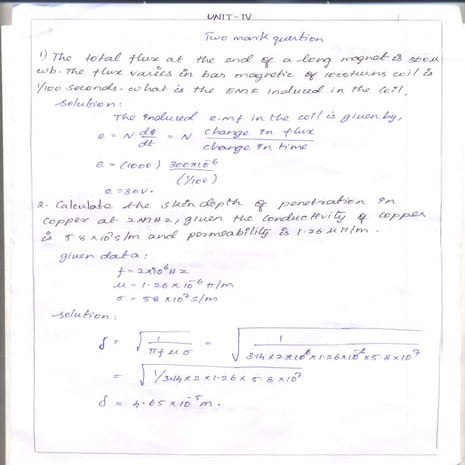 UNIT - IV
Two mark question
1) The total flux at the end of a long magnet is 300μ
wb. The flux varies in bar magnetic of 1000turns coil is
1/100 seconds. what is the EMF induced in the coil.
Solution:
The induced e.m.f in the coil is given by,
e = N dφ/dt = N change in flux / change in time
e = (1000) 300×10⁻⁶ / (1/100)
e = 30V.
2. Calculate the skin depth of penetration in
copper at 2MHz, given the conductivity of copper
is 5.8 × 10⁷ s/m and permeability is 1.26 μH/m.
given data:
f = 2×10⁶ Hz
μ = 1.26 × 10⁻⁶ H/m
σ = 58 × 10⁷ s/m
Solution:
δ = √(1 / πfμσ) = √(1 / 3.14×2×10⁶×1.26×10⁻⁶×5.8×10⁷)
= √(1/3.14×2×1.26×5.8×10⁷)
δ = 4.65×10⁻⁵ m.